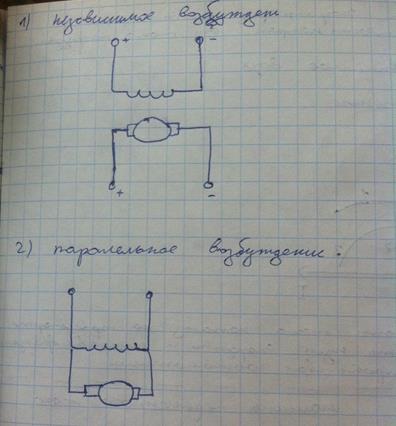 1) независимое возбужден
+ -
+ -
2) паролельное возбуждение.